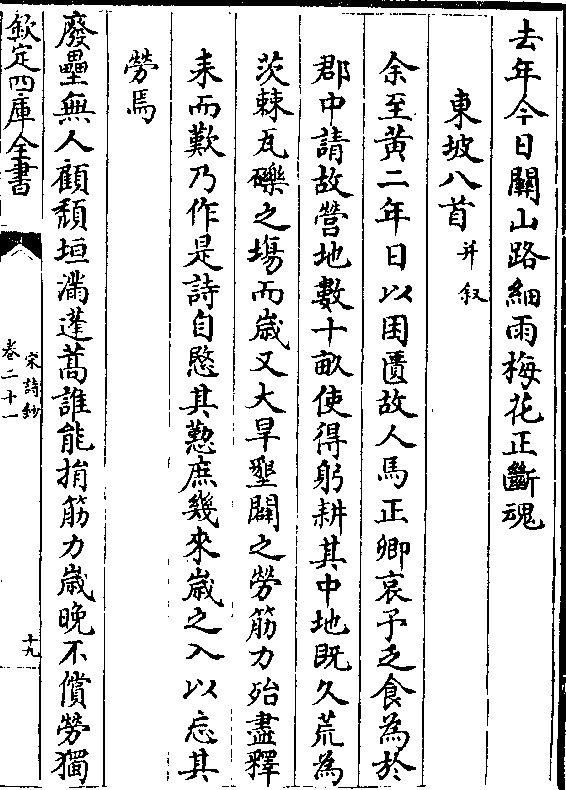 去年今日關山路細雨梅花正斷魂
東坡八首并叙
余至黄二年日以困匱故人馬正卿哀予乏食為於
郡中請故營地數十畝使得躬耕其中地既久荒為
茨棘瓦礫之場而歲又大旱墾闢之勞筋力殆盡釋
耒而歎乃作是詩自愍其懃庶幾來歲之入以忘其
勞焉
廢壘無人顧頹垣滿蓬蒿誰能捐筋力歲晚不償勞獨
欽定四庫全書
宋詩鈔
卷二十一
十九